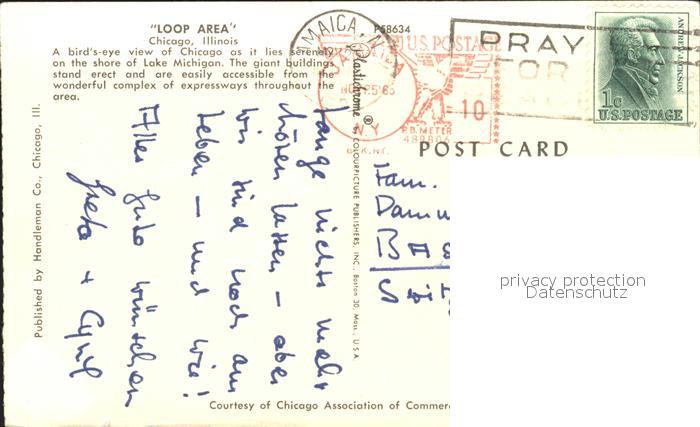 "LOOP AREA"
Chicago, Illinois
A bird's-eye view of Chicago as it lies serenely
on the shore of Lake Michigan. The giant buildings
stand erect and are easily accessible from the
wonderful complex of expressways throughout the
area.
P58634
JAMAICA, N.Y.
U.S. POSTAGE
10
P.B. METER
N.Y.
PRAY
FOR
ANDREW JACKSON
1c
U.S. POSTAGE
POST CARD
Plastichrome ®
COLOURPICTURE PUBLISHERS, INC., Boston 30, Mass., U.S.A.
Published by Handleman Co., Chicago, Ill.
Lange nichts mehr
hören lassen – aber
wir sind noch am
Leben – und wie!
Alles Gute wünschen
Greta + Cyril
Fam.
privacy protection
Datenschutz
Courtesy of Chicago Association of Commer